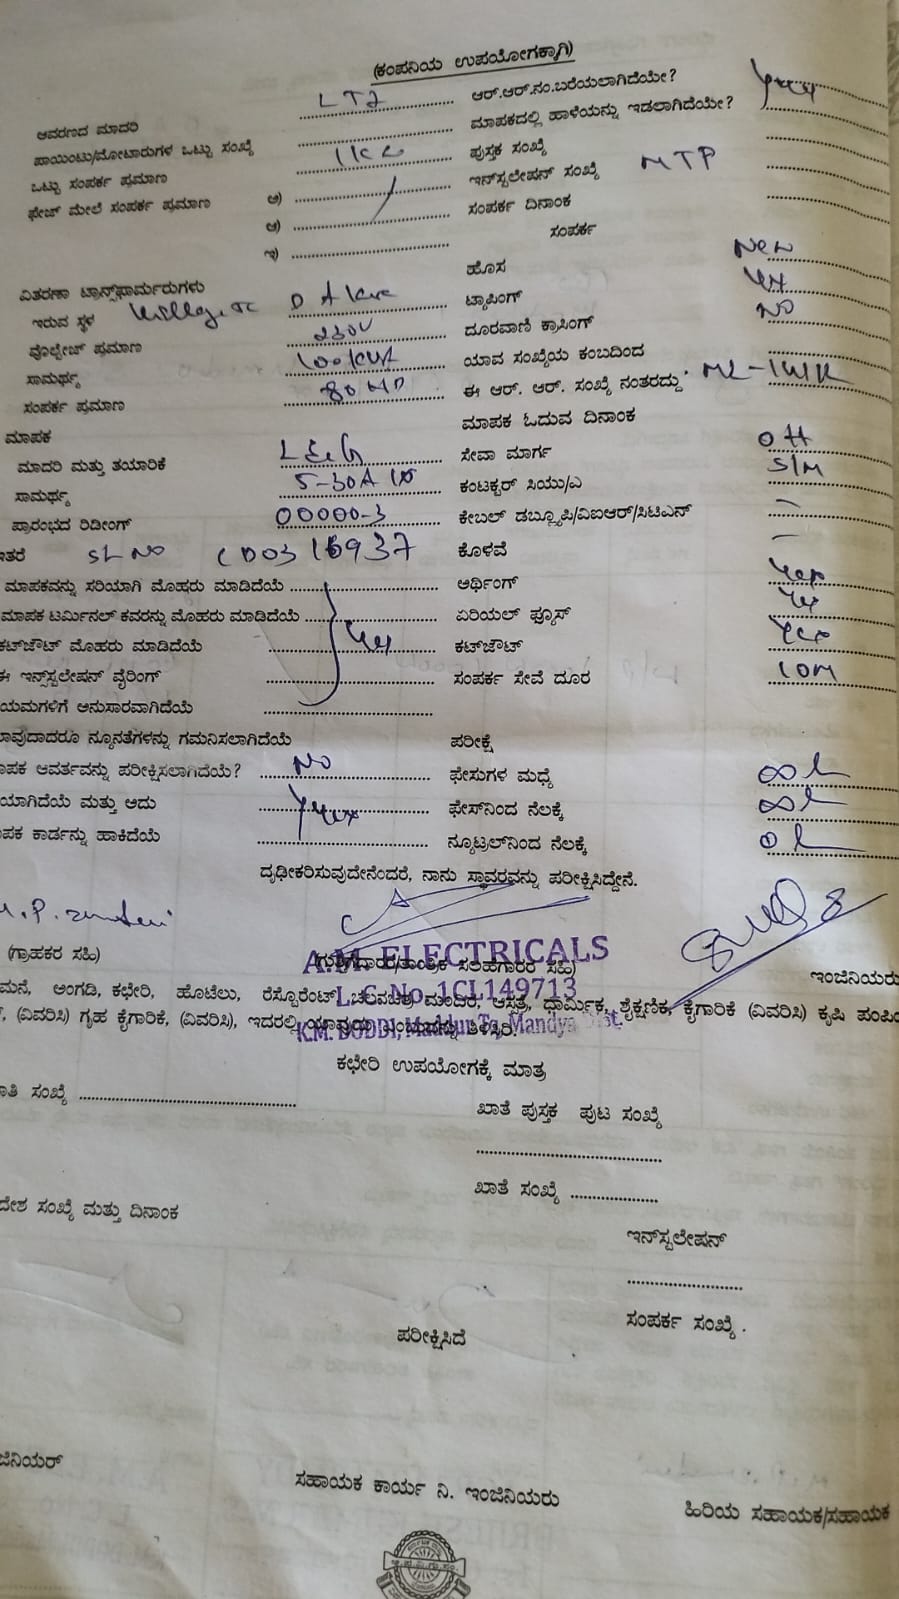 (ಕಂಪನಿಯ ಉಪಯೋಗಕ್ಕಾಗಿ)
ಆವರಣದ ಮಾದರಿ LT2 ಆರ್.ಆರ್.ನಂ.ಬರೆಯಲಾಗಿದೆಯೇ?
ಪಾಯಿಂಟು/ಮೋಟಾರುಗಳ ಒಟ್ಟು ಸಂಖ್ಯೆ ಮಾಪಕದಲ್ಲಿ ಹಾಳೆಯನ್ನು ಇಡಲಾಗಿದೆಯೇ?
ಒಟ್ಟು ಸಂಪರ್ಕ ಪ್ರಮಾಣ ಪುಸ್ತಕ ಸಂಖ್ಯೆ
ಫೇಜ್ ಮೇಲೆ ಸಂಪರ್ಕ ಪ್ರಮಾಣ ಅ) ಇನ್‌ಸ್ಟಲೇಷನ್ ಸಂಖ್ಯೆ MTP
ಆ) ಸಂಪರ್ಕ ದಿನಾಂಕ
ಇ) ಸಂಪರ್ಕ
ವಿತರಣಾ ಟ್ರಾನ್ಸ್‌ಫಾರ್ಮರುಗಳು ಹೊಸ New
ಇರುವ ಸ್ಥಳ ಟ್ಯಾಪಿಂಗ್
ವೊಲ್ಟೇಜ್ ಪ್ರಮಾಣ 230V ದೂರವಾಣಿ ಕ್ರಾಸಿಂಗ್ NO
ಸಾಮರ್ಥ್ಯ 100KVA ಯಾವ ಸಂಖ್ಯೆಯ ಕಂಬದಿಂದ
ಸಂಪರ್ಕ ಪ್ರಮಾಣ ಈ ಆರ್. ಆರ್. ಸಂಖ್ಯೆ ನಂತರದ್ದು
ಮಾಪಕ ಮಾಪಕ ಓದುವ ದಿನಾಂಕ
ಮಾದರಿ ಮತ್ತು ತಯಾರಿಕೆ L&G ಸೇವಾ ಮಾರ್ಗ OH
ಸಾಮರ್ಥ್ಯ 5-30A ಕಂಟಕ್ಟರ್ ಸಿಯು/ಎ S/M
ಪ್ರಾರಂಭದ ರಿಡೀಂಗ್ 00000-3 ಕೇಬಲ್ ಡಬ್ಲ್ಯೂಪಿ/ವಿಐಆರ್/ಸಿಟಿಎಸ್ —
ಇತರೆ SL NO ಕೊಳವೆ —
ಮಾಪಕವನ್ನು ಸರಿಯಾಗಿ ಮೊಹರು ಮಾಡಿದೆಯೆ ಅರ್ಥಿಂಗ್ yes
ಮಾಪಕ ಟರ್ಮಿನಲ್ ಕವರನ್ನು ಮೊಹರು ಮಾಡಿದೆಯೆ ಏರಿಯಲ್ ಫ್ಯೂಸ್
ಕಟ್‌ಔಟ್ ಮೊಹರು ಮಾಡಿದೆಯೆ ಕಟ್‌ಔಟ್ yes
ಈ ಇನ್ಸ್‌ಸ್ಟಲೇಷನ್ ವೈರಿಂಗ್ ಸಂಪರ್ಕ ಸೇವೆ ದೂರ 10M
ಯಮಗಳಿಗೆ ಅನುಸಾರವಾಗಿದೆಯೆ
ಾವುದಾದರೂ ನ್ಯೂನತೆಗಳನ್ನು ಗಮನಿಸಲಾಗಿದೆಯೆ ಪರೀಕ್ಷೆ
ಾಪಕ ಆವರ್ತವನ್ನು ಪರೀಕ್ಷಿಸಲಾಗಿದೆಯೆ? NO ಫೇಸುಗಳ ಮಧ್ಯೆ
ಯಾಗಿದೆಯೆ ಮತ್ತು ಅದು ಫೇಸ್‌ನಿಂದ ನೆಲಕ್ಕೆ
ಾಪಕ ಕಾರ್ಡನ್ನು ಹಾಕಿದೆಯೆ ನ್ಯೂಟ್ರಲ್‌ನಿಂದ ನೆಲಕ್ಕೆ
ದೃಢೀಕರಿಸುವುದೇನೆಂದರೆ, ನಾನು ಸ್ಥಾವರವನ್ನು ಪರೀಕ್ಷಿಸಿದ್ದೇನೆ.
A.M. ELECTRICALS
(ಗ್ರಾಹಕರ ಸಹಿ) (ಗುತ್ತಿಗೆದಾರರ/ತಾಂತ್ರಿಕ ಸಲಹೆಗಾರರ ಸಹಿ) ಇಂಜಿನಿಯರು
L.C. No. 1CL149713
ಮನೆ, ಅಂಗಡಿ, ಕಛೇರಿ, ಹೊಟೆಲು, ರೆಸ್ಟೊರೆಂಟ್, ಚಲನಚಿತ್ರ ಮಂದಿರ, ಆಸ್ಪತ್ರೆ, ಧಾರ್ಮಿಕ, ಶೈಕ್ಷಣಿಕ, ಕೈಗಾರಿಕೆ (ವಿವರಿಸಿ) ಕೃಷಿ ಪಂಪಿ
(ವಿವರಿಸಿ) ಗೃಹ ಕೈಗಾರಿಕೆ, (ವಿವರಿಸಿ), ಇದರಲ್ಲಿ ತಿಳಿಸಿರಿ.
K.M. DODDI, Maddur Tq, Mandya Dist.
ಕಛೇರಿ ಉಪಯೋಗಕ್ಕೆ ಮಾತ್ರ
ಾತಿ ಸಂಖ್ಯೆ ಖಾತೆ ಪುಸ್ತಕ ಪುಟ ಸಂಖ್ಯೆ
ಖಾತೆ ಸಂಖ್ಯೆ
ದೇಶ ಸಂಖ್ಯೆ ಮತ್ತು ದಿನಾಂಕ
ಇನ್‌ಸ್ಟಲೇಷನ್
ಸಂಪರ್ಕ ಸಂಖ್ಯೆ.
ಪರೀಕ್ಷಿಸಿದೆ
ಜಿನಿಯರ್ ಸಹಾಯಕ ಕಾರ್ಯ ನಿ. ಇಂಜಿನಿಯರು ಹಿರಿಯ ಸಹಾಯಕ/ಸಹಾಯಕ